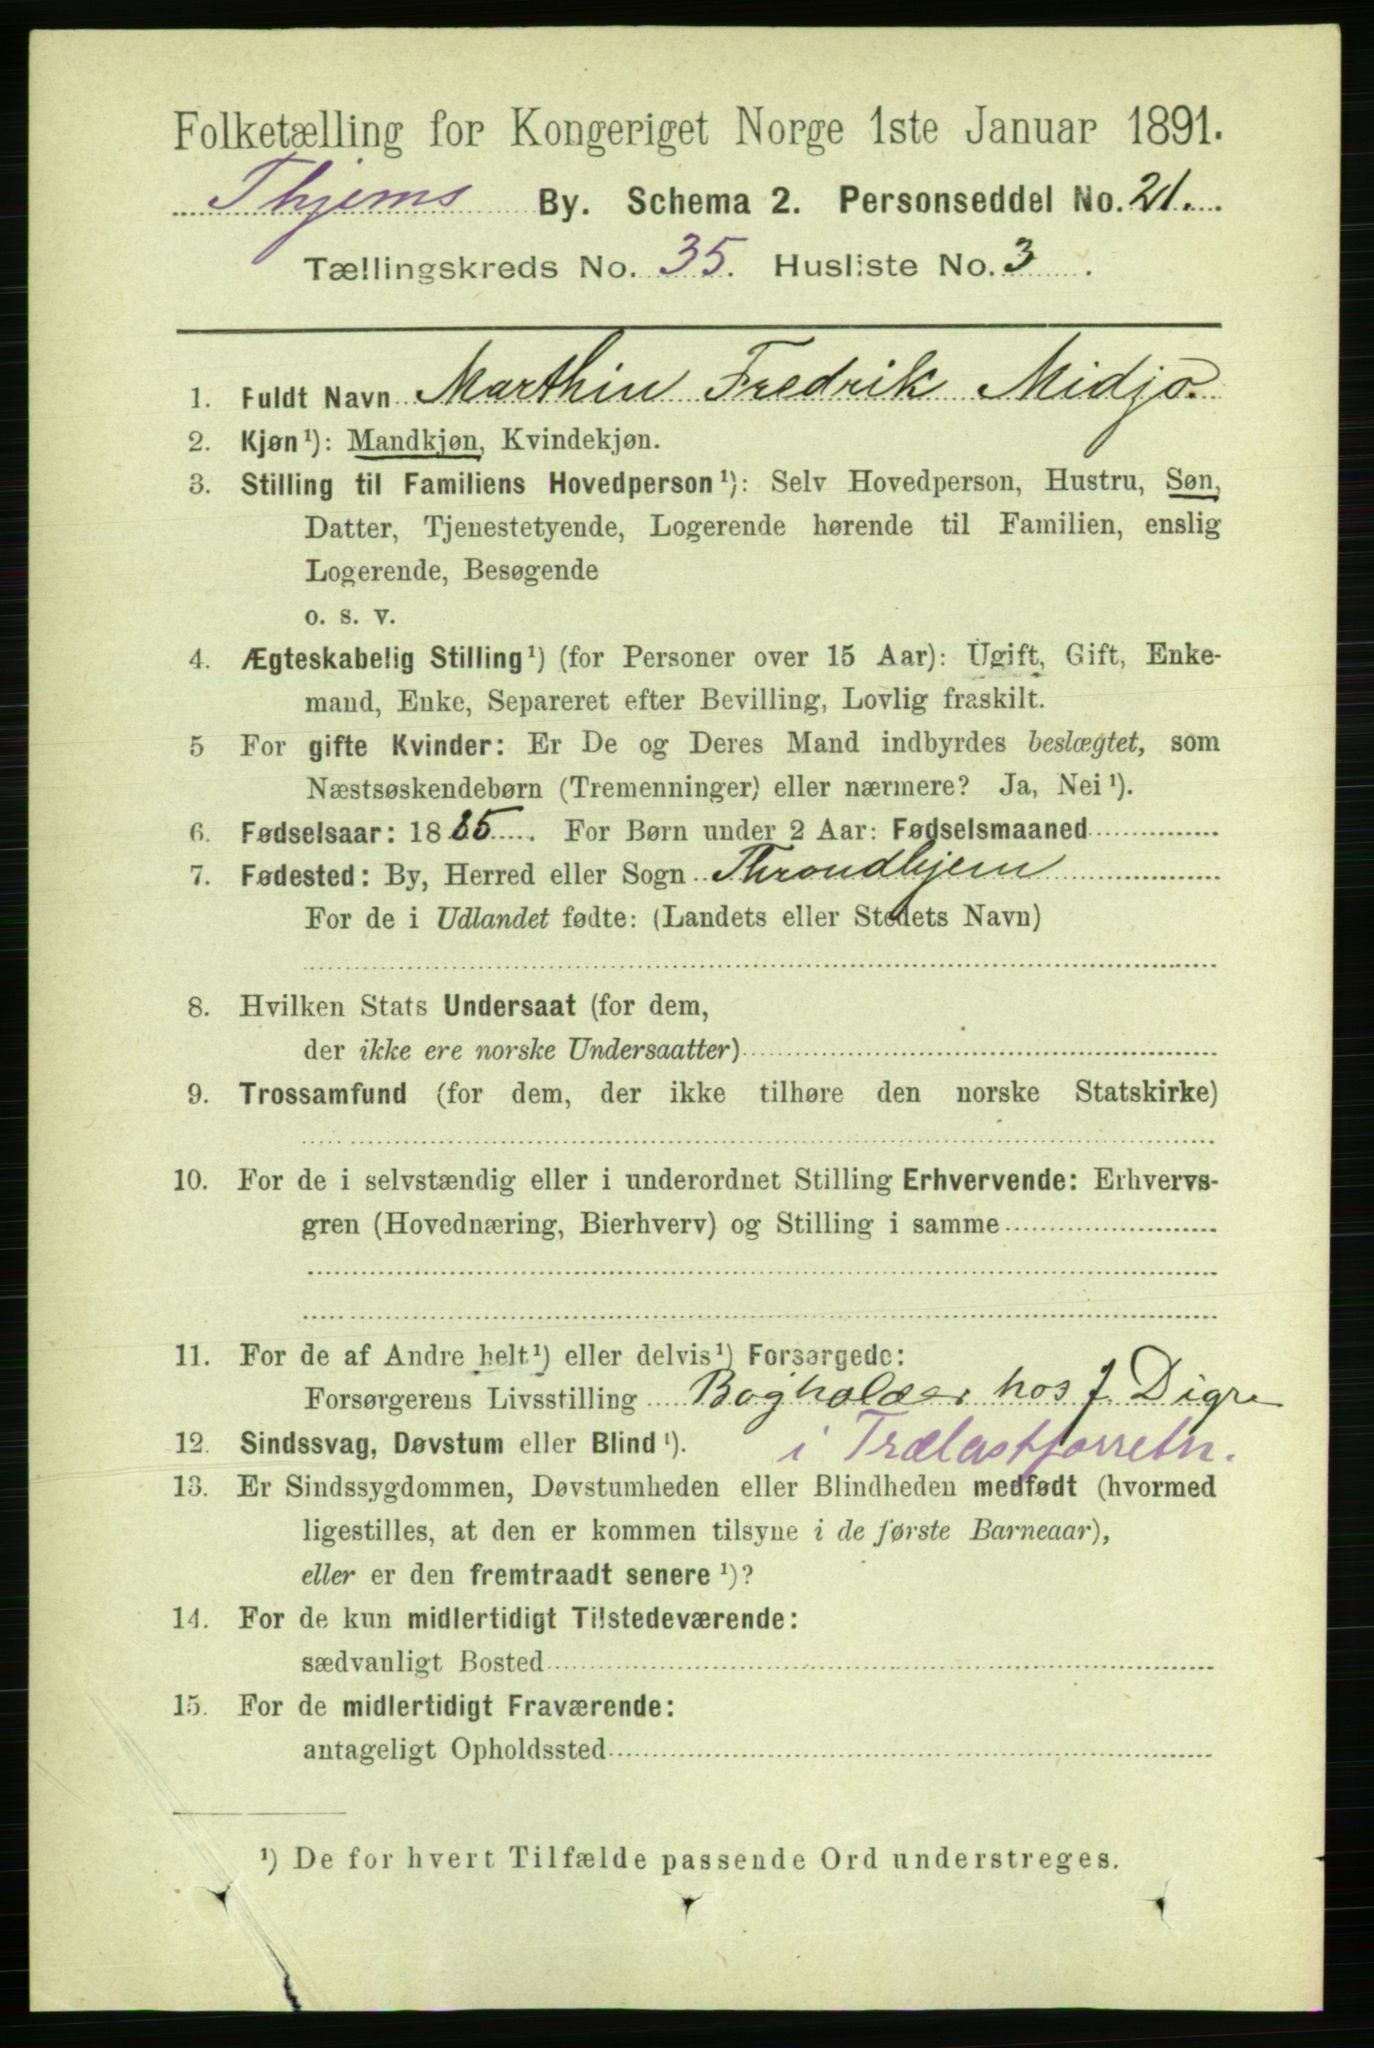 Folketælling for Kongeriget Norge 1ste Januar 1891.
Thjems By. Schema 2. Personseddel No. 21.
Tællingskreds No. 35. Husliste No. 3.
1. Fuldt Navn Marthin Fredrik Midjo.
2. Kjøn¹): Mandkjøn, Kvindekjøn.
3. Stilling til Familiens Hovedperson¹): Selv Hovedperson, Hustru, Søn,
Datter, Tjenestetyende, Logerende hørende til Familien, enslig
Logerende, Besøgende
o. s. v.
4. Ægteskabelig Stilling¹) (for Personer over 15 Aar): Ugift, Gift, Enke-
mand, Enke, Separeret efter Bevilling, Lovlig fraskilt.
5 For gifte Kvinder: Er De og Deres Mand indbyrdes beslægtet, som
Næstsøskendebørn (Tremenninger) eller nærmere? Ja, Nei¹).
6. Fødselsaar: 1885. For Børn under 2 Aar: Fødselsmaaned
7. Fødested: By, Herred eller Sogn Throndhjem
For de i Udlandet fødte: (Landets eller Stedets Navn)
8. Hvilken Stats Undersaat (for dem,
der ikke ere norske Undersaatter)
9. Trossamfund (for dem, der ikke tilhøre den norske Statskirke)
10. For de i selvstændig eller i underordnet Stilling Erhvervende: Erhvervs-
gren (Hovednæring, Bierhverv) og Stilling i samme
11. For de af Andre helt¹) eller delvis¹) Forsørgede:
Forsørgerens Livsstilling Bogholder hos J. Digre
i Trælastforretn.
12. Sindssvag, Døvstum eller Blind¹).
13. Er Sindssygdommen, Døvstumheden eller Blindheden medfødt (hvormed
ligestilles, at den er kommen tilsyne i de første Barneaar),
eller er den fremtraadt senere¹)?
14. For de kun midlertidigt Tilstedeværende:
sædvanligt Bosted
15. For de midlertidigt Fraværende:
antageligt Opholdssted
¹) De for hvert Tilfælde passende Ord understreges.